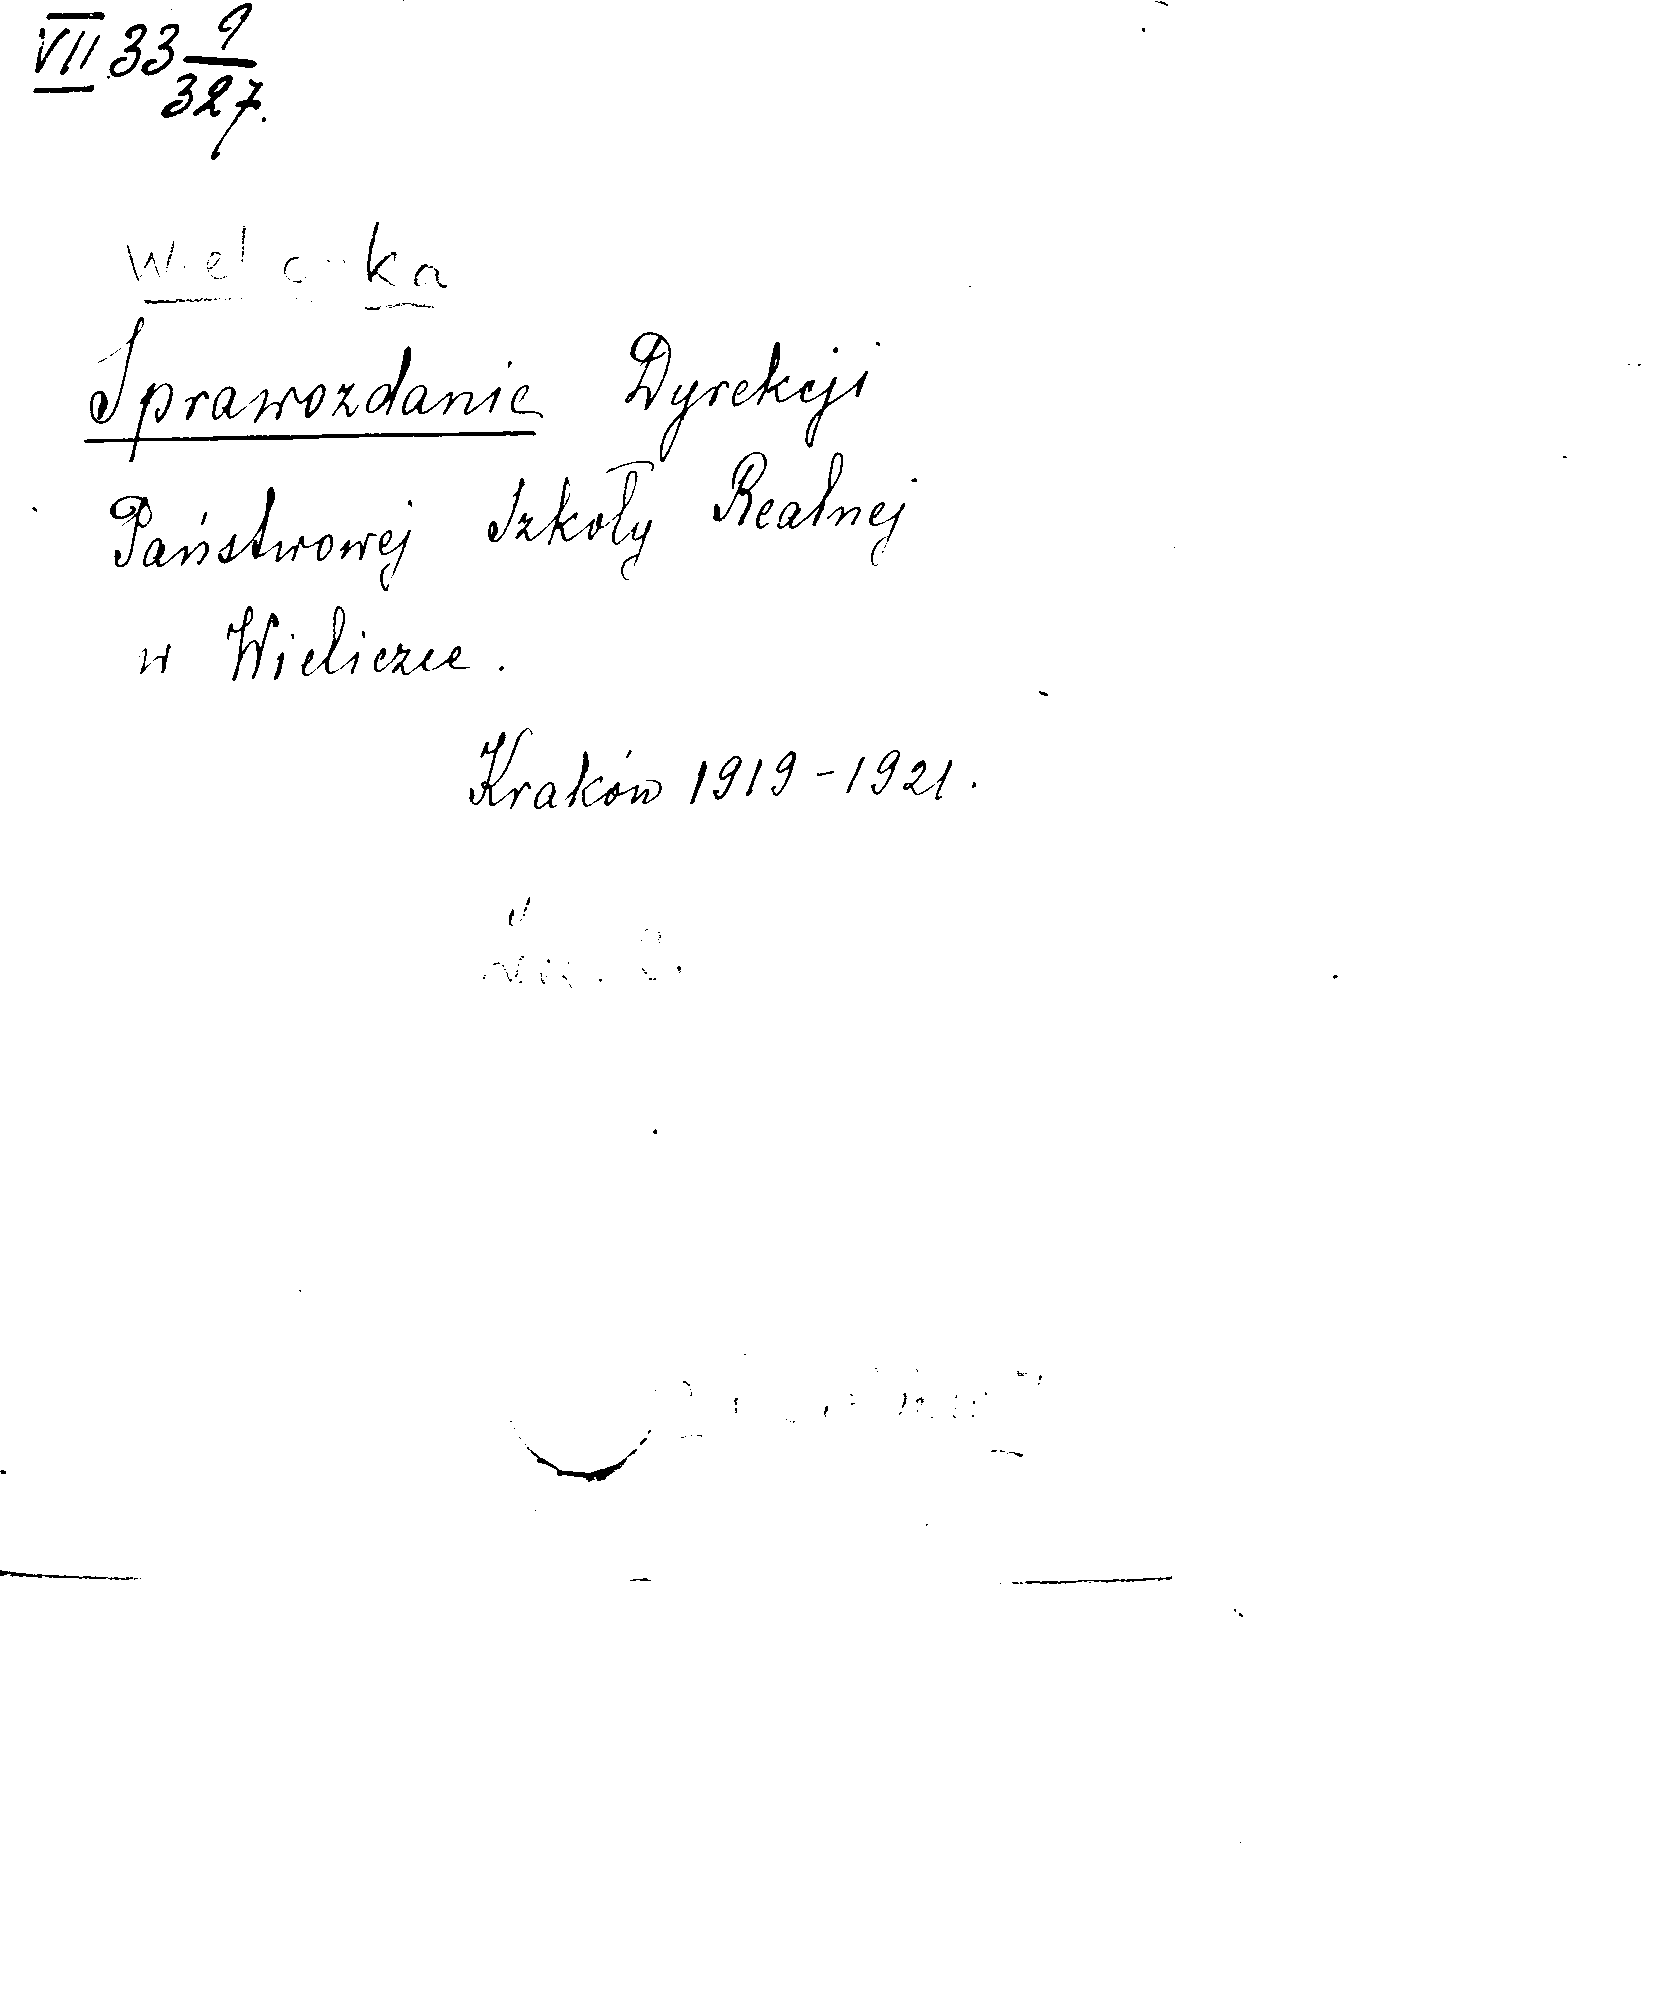 VII 33 9/327.
Sprawozdanie Dyrekcji
Państwowej Szkoły Realnej
w Wieliczce.
Kraków 1919-1921.